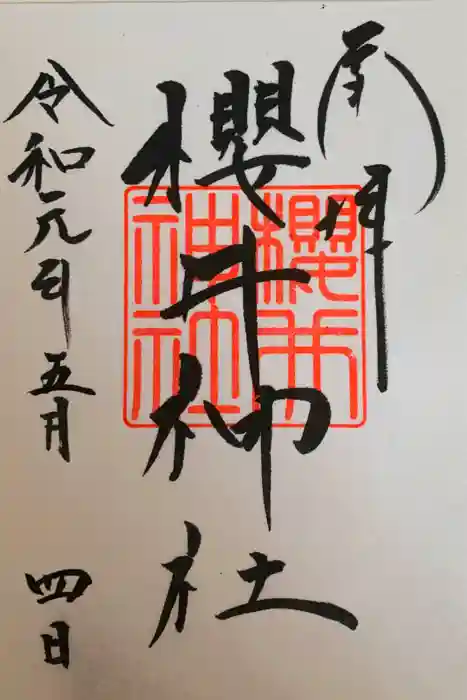 奉拝
櫻井神社
櫻井
神社
令和元年五月四日